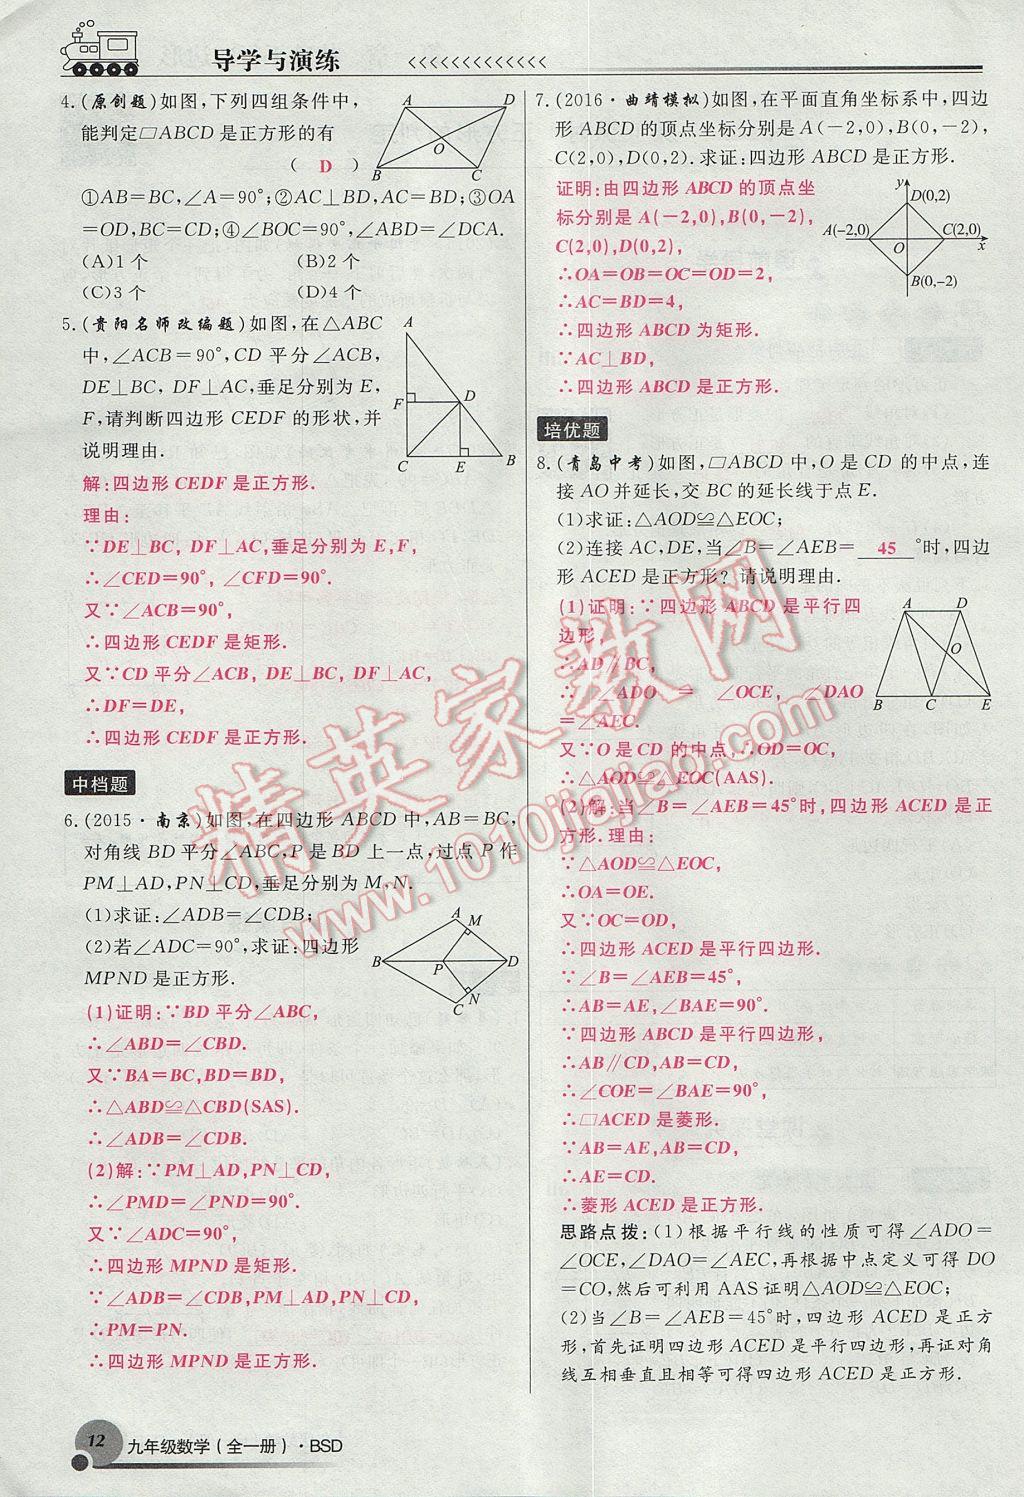 导学与演练
4.(原创题)如图,下列四组条件中,
能判定□ABCD是正方形的有
( D )
①AB=BC,∠A=90°;②AC⊥BD,AC=BD;③OA
=OD,BC=CD;④∠BOC=90°,∠ABD=∠DCA.
(A)1个 (B)2个
(C)3个 (D)4个
A
D
O
B
C
5.(贵阳名师改编题)如图,在△ABC
中,∠ACB=90°,CD平分∠ACB,
DE⊥BC,DF⊥AC,垂足分别为E,
F,请判断四边形CEDF的形状,并
说明理由.
A
F
D
C
E
B
解:四边形CEDF是正方形.
理由:
∵DE⊥BC,DF⊥AC,垂足分别为E,F,
∴∠CED=90°,∠CFD=90°.
又∵∠ACB=90°,
∴四边形CEDF是矩形.
又∵CD平分∠ACB,DE⊥BC,DF⊥AC,
∴DF=DE,
∴四边形CEDF是正方形.
中档题
6.(2015·南京)如图,在四边形ABCD中,AB=BC,
对角线BD平分∠ABC,P是BD上一点,过点P作
PM⊥AD,PN⊥CD,垂足分别为M,N.
(1)求证:∠ADB=∠CDB;
(2)若∠ADC=90°,求证:四边形
MPND是正方形.
A
M
B
P
D
N
C
(1)证明:∵BD平分∠ABC,
∴∠ABD=∠CBD.
又∵BA=BC,BD=BD,
∴△ABD≌△CBD(SAS).
∴∠ADB=∠CDB.
(2)解:∵PM⊥AD,PN⊥CD,
∴∠PMD=∠PND=90°.
又∵∠ADC=90°,
∴四边形MPND是矩形.
∵∠ADB=∠CDB,PM⊥AD,PN⊥CD,
∴PM=PN.
∴四边形MPND是正方形.
7.(2016·曲靖模拟)如图,在平面直角坐标系中,四边
形ABCD的顶点坐标分别是A(-2,0),B(0,-2),
C(2,0),D(0,2).求证:四边形ABCD是正方形.
证明:由四边形ABCD的顶点坐
标分别是A(-2,0),B(0,-2),
C(2,0),D(0,2),
∴OA=OB=OC=OD=2,
∴AC=BD=4,
∴四边形ABCD为矩形.
∵AC⊥BD,
∴四边形ABCD是正方形.
y
D(0,2)
A(-2,0)
C(2,0)
O
x
B(0,-2)
培优题
8.(青岛中考)如图,□ABCD中,O是CD的中点,连
接AO并延长,交BC的延长线于点E.
(1)求证:△AOD≌△EOC;
(2)连接AC,DE,当∠B=∠AEB=45°时,四边
形ACED是正方形?请说明理由.
(1)证明:∵四边形ABCD是平行四
边形,
∴AD∥BC,
∴∠ADO=∠OCE,∠DAO
=∠AEC.
又∵O是CD的中点,∴OD=OC,
∴△AOD≌△EOC(AAS).
A
D
O
B
C
E
(2)解:当∠B=∠AEB=45°时,四边形ACED是正
方形.理由:
∵△AOD≌△EOC,
∴OA=OE.
又∵OC=OD,
∴四边形ACED是平行四边形.
∵∠B=∠AEB=45°,
∴AB=AE,∠BAE=90°.
∵四边形ABCD是平行四边形,
∴AB∥CD,AB=CD,
∴∠COE=∠BAE=90°,
∴□ACED是菱形.
∵AB=AE,AB=CD,
∴AE=CD.
∴菱形ACED是正方形.
思路点拨:(1)根据平行线的性质可得∠ADO=
∠OCE,∠DAO=∠AEC,再根据中点定义可得DO
=CO,然后可利用AAS证明△AOD≌△EOC;
(2)当∠B=∠AEB=45°时,四边形ACED是正方
形,首先证明四边形ACED是平行四边形,再证对角
线互相垂直且相等可得四边形ACED是正方形.
精英家教网
www.1010jiajiao.com
12 九年级数学(全一册)·BSD